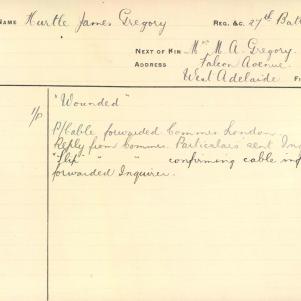 NAME Hurtle James Gregory REG. &C. 27th Batt
NEXT OF KIN Mrs M. A. Gregory.
ADDRESS Falcon Avenue.
West Adelaide
"Wounded"
P/Cable forwarded Commrs London
Reply from Commrs. Particulars sent Inq
" " confirming cable inf
forwarded Inquirer.